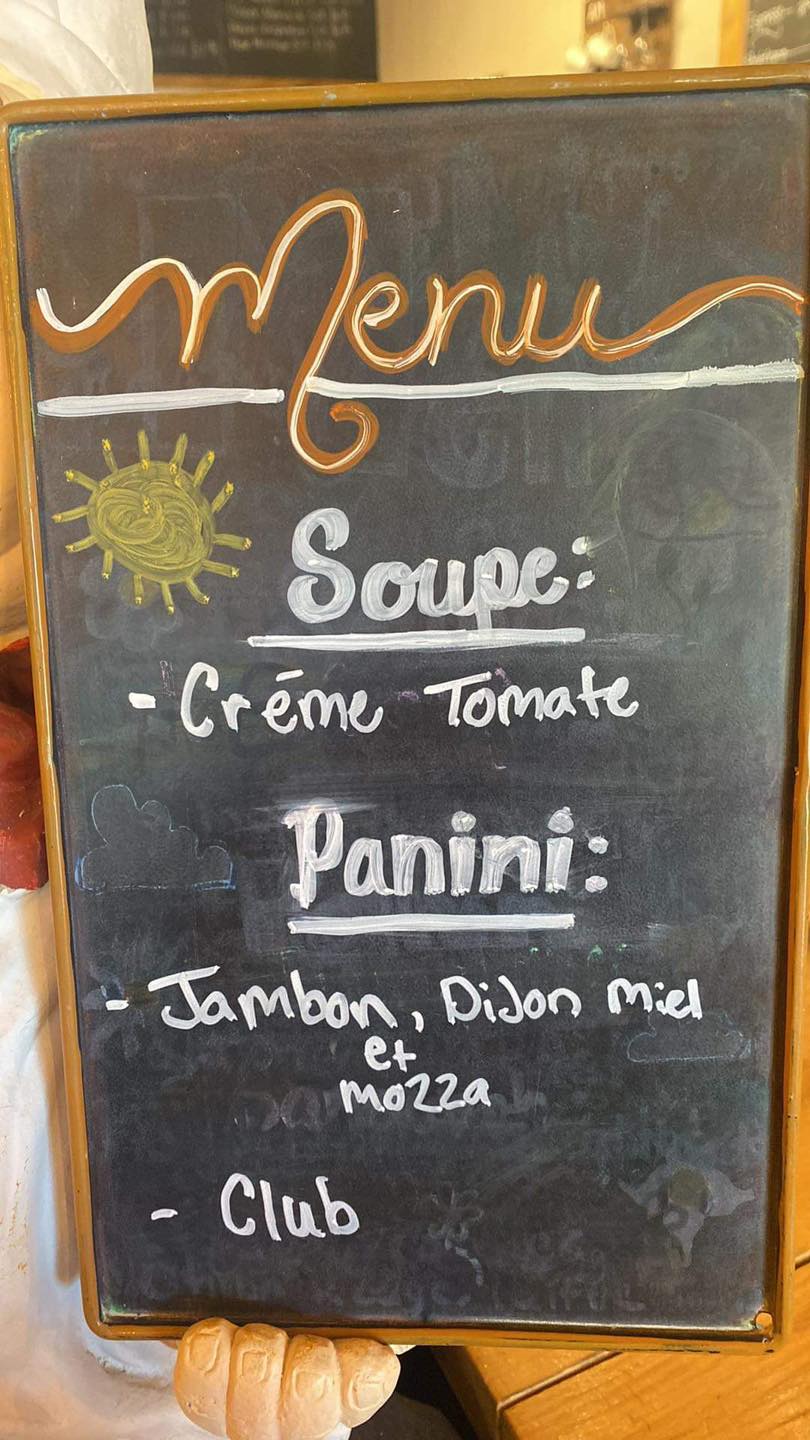 Menu
Soupe:
- Créme Tomate
Panini:
- Jambon, Dijon miel
et
mozza
- Club